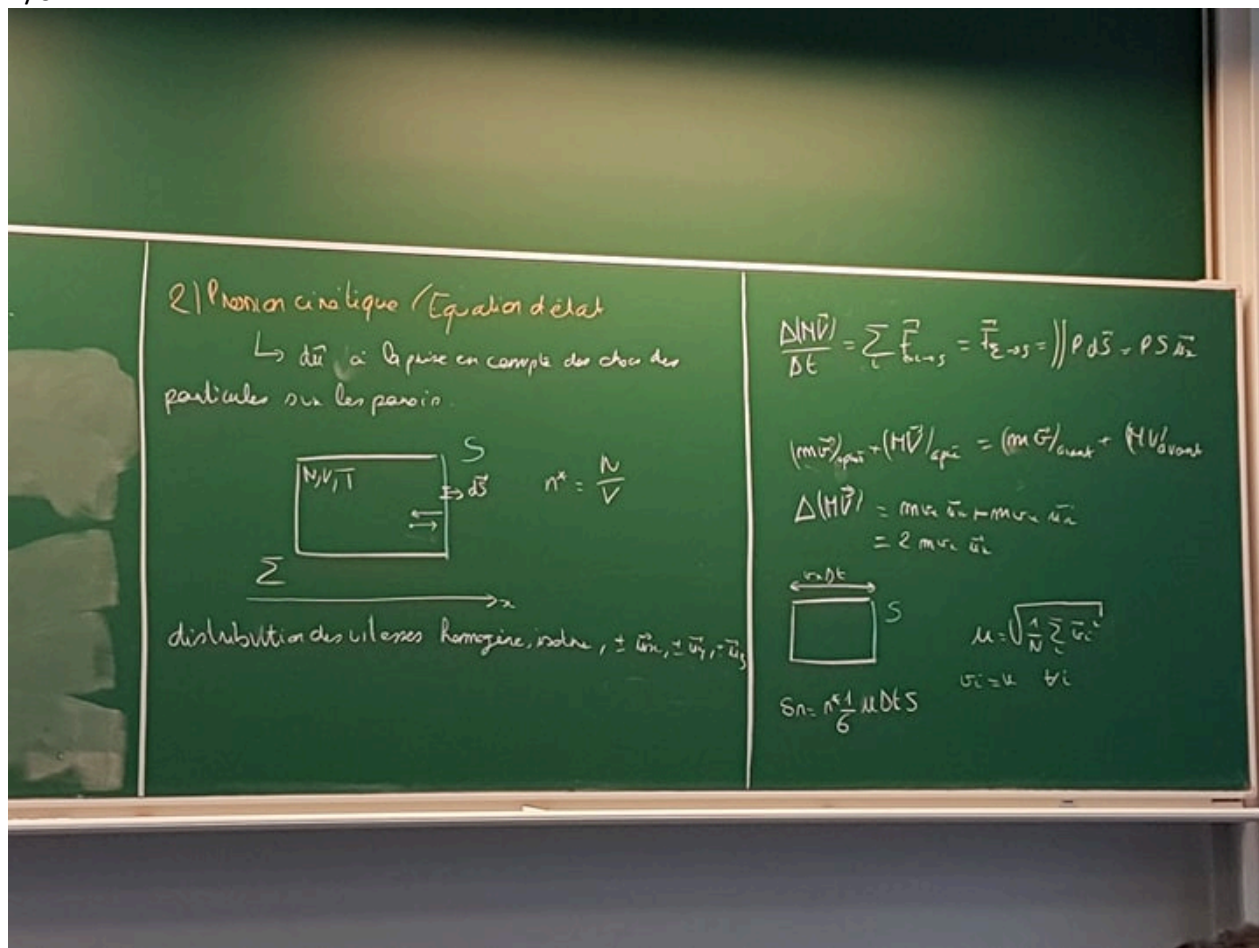 2) Pression cinétique / Equation d'état
↳ dû à la prise en compte des chocs des
particules sur les parois.
N, V, T
S
d\vec{S}
n* = N/V
Σ
x
distribution des vitesses homogène, isotrope, ± \vec{u}_x, ± \vec{u}_y, ± \vec{u}_z
Δ(M\vec{V})/Δt = Σ_i \vec{F}_{i→S} = \vec{F}_{Σ→S} = ∬ P d\vec{S} = P S \vec{u}_x
(m\vec{v})_{après} + (M\vec{V})_{après} = (m\vec{v})_{avant} + (M\vec{V})_{avant}
Δ(M\vec{V}) = m v_x \vec{u}_x + m v_x \vec{u}_x
= 2 m v_x \vec{u}_x
v_x Δt
S
u = √(1/N Σ_i \vec{v}_i²)
v_i = u ∀i
δn = n* 1/6 u Δt S